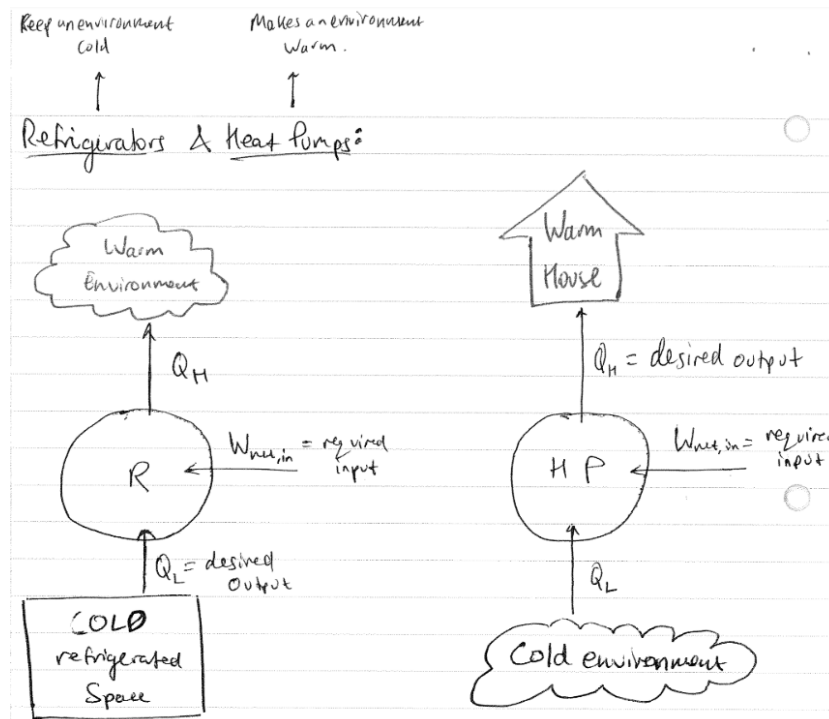 Keep an environment
Cold
Makes an environment
Warm.
Refrigirators & Heat Pumps:
Warm
Environment
Q_H
R
W_net,in = required
input
Q_L = desired
output
COLD
refrigerated
Space
Warm
House
Q_H = desired output
HP
W_net,in = required
input
Q_L
Cold environment